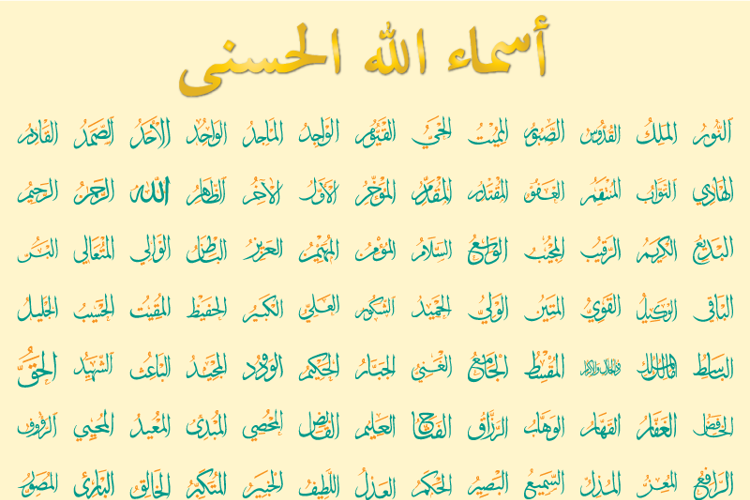 أسماء الله الحسنى
النور الملك القدوس الصبور المميت الحي القيوم الواجد الماجد الواحد الأحد الصمد القادر
الهادي التواب المنتقم العفو المقتدر المقدم المؤخر الأول الآخر الظاهر الله الرحمن الرحيم
البديع الكريم الرقيب المجيب الواسع السلام المؤمن المهيمن العزيز الباطن الوالي المتعالي البر
الباقي الوكيل القوي المتين الولي الحميد الشكور العلي الكبير الحفيظ المقيت الحسيب الجليل
الباسط مالك الملك ذو الجلال والإكرام المقسط الجامع الغني الجبار الحكيم الودود المجيد الباعث الشهيد الحق
الخافض الغفار القهار الوهاب الرزاق الفتاح العليم القابض المحصي المبدئ المعيد المحيي الرؤوف
الرافع المعز المذل السميع البصير الحكم العدل اللطيف الخبير المتكبر الخالق البارئ المصور